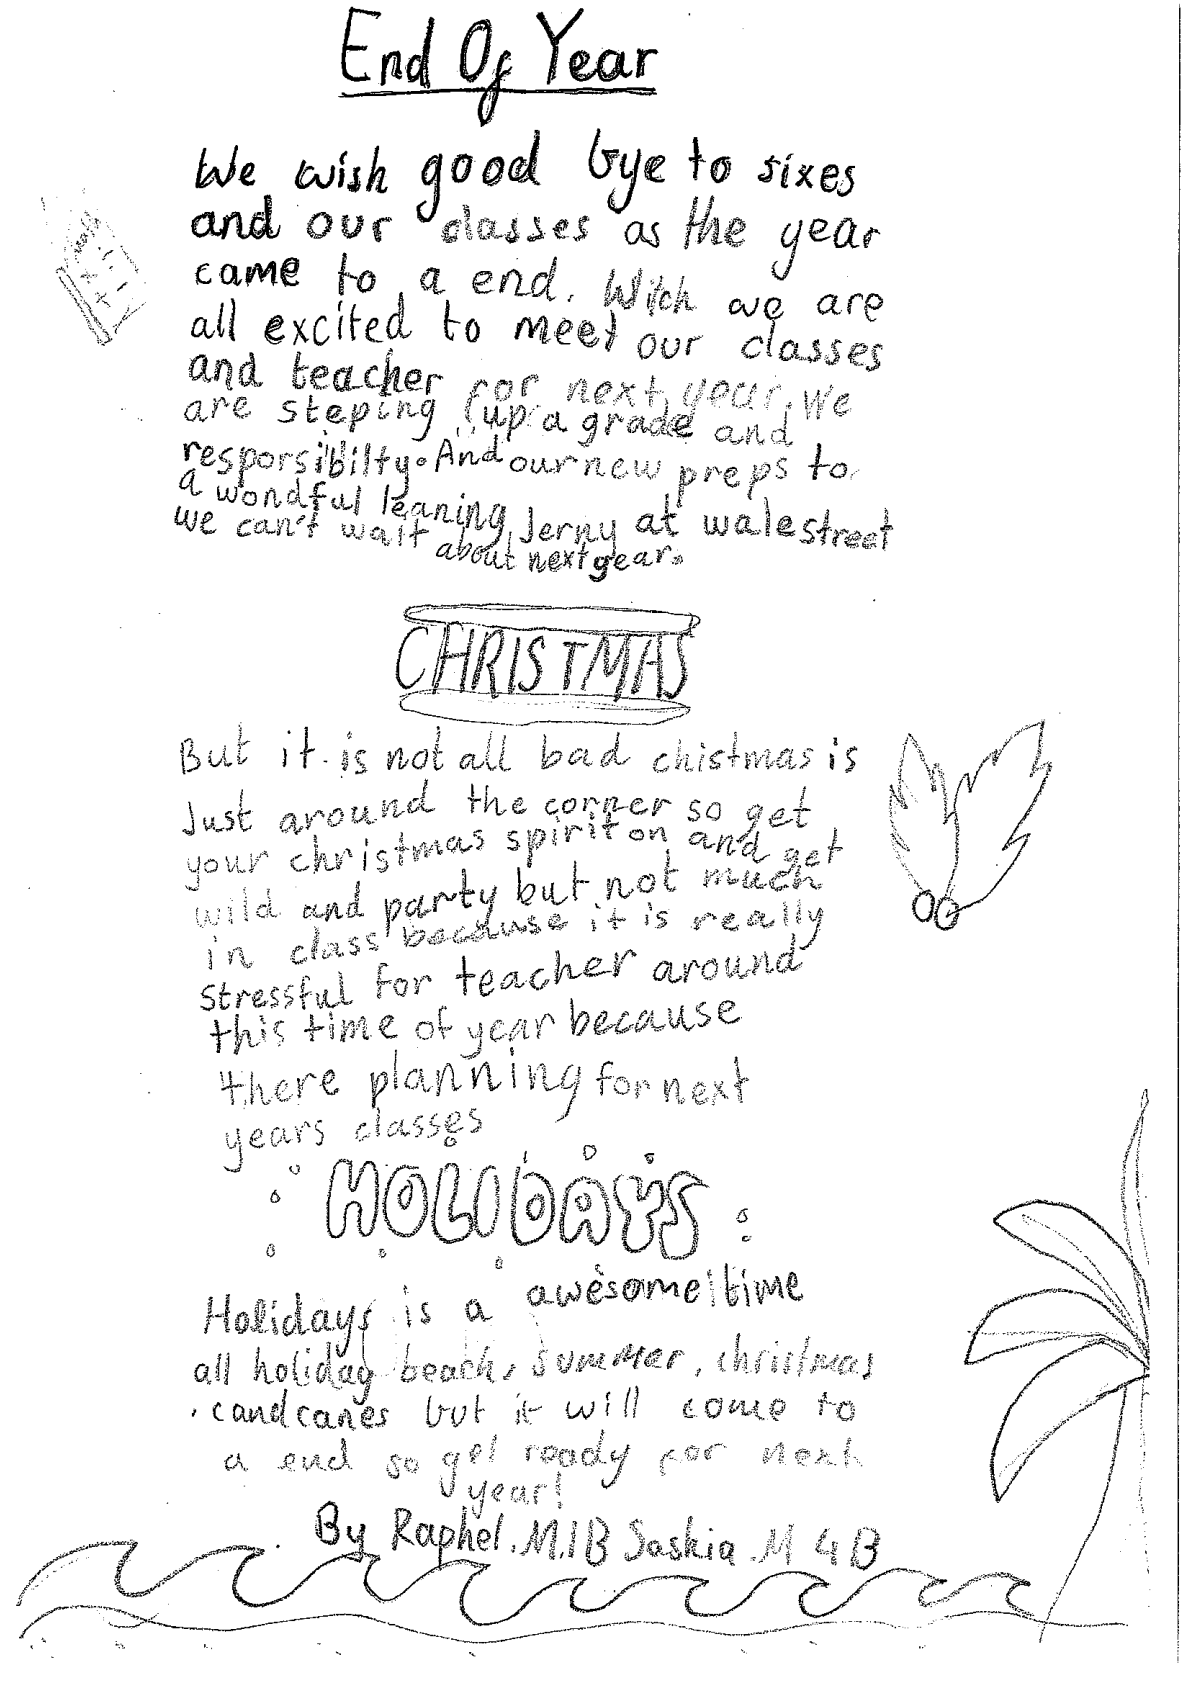 End Of Year
We wish good bye to sixes
and our classes as the year
came to a end. Witch we are
all excited to meet our classes
and teacher for next year. We
are steping up a grade and
responsibilty. And our new preps to
a wondful leaning Jerny at walestreet
we can't wait about next year.
CHRISTMAS
But it is not all bad chistmas is
Just around the corner so get
your christmas spirit on and get
wild and party but not much
in class because it is really
stressful for teacher around
this time of year because
there planning for next
years classes
HOLIDAYS
Holidays is a awesome time
all holiday beach, summer, christmas
, candcanes but it will come to
a end so get roady for next
year!
By Raphel.M.1B Saskia.M 4B